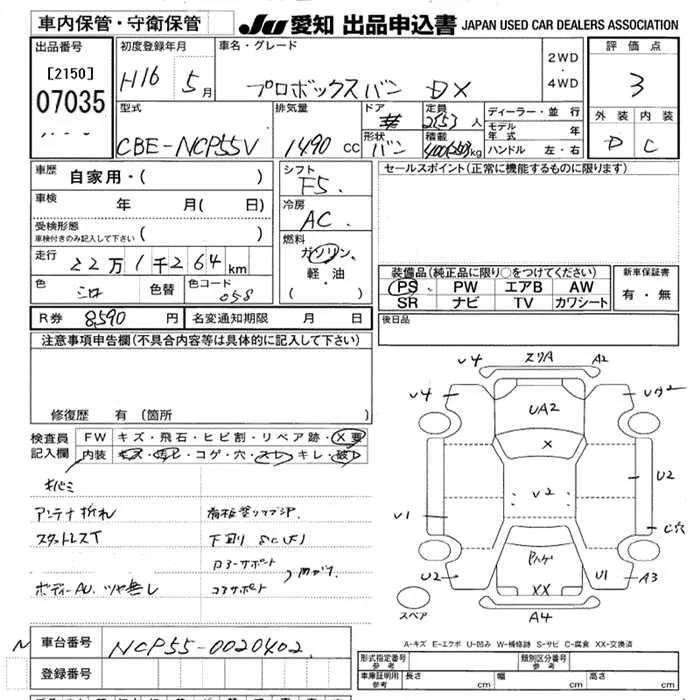 車内保管・守衛保管
JU 愛知 出品申込書 JAPAN USED CAR DEALERS ASSOCIATION
出品番号
[2150]
07035
初度登録年月
H16 5月
車名・グレード
プロボックスバン DX
2WD
・
4WD
評価点
3
外装 内装
D C
型式
CBE-NCP55V
排気量
1490 CC
ドア
形状
バン
定員
2/5 人
積載
kg
ディーラー・並行
モデル年式 年
ハンドル 左・右
車歴
自家用・( )
車検
年 月( 日)
受検形態
車検付きのみ記入して下さい ( )
走行
22万1千264km
色
シロ
色替
色コード
058
シフト
F5
冷房
AC
燃料
ガソリン
軽・油
・( )
セールスポイント(正常に機能するものに限ります)
装備品(純正品に限り○をつけてください)
PS PW エアB AW
SR ナビ TV カワシート
新車保証書
有・無
R券 8590 円 名変通知期限 月 日
後日品
注意事項申告欄(不具合内容等は具体的に記入して下さい)
修復歴 有(箇所 )
検査員記入欄
FW キズ・飛石・ヒビ割・リペア跡・X要
内装 キズ・汚レ・コゲ・穴・スレ・キレ・破レ
キバミ
アンテナ折れ
スタットレスT
下回り SC(F)
コアサポート
曲がり
コアサポート
ボディーAU. ツヤ無し
V4 エクリA A2
V4 UA2 UA2
X
V2 U2
V1 C穴
U2 Pハゲ U1 A3
XX
A4
スペア
A-キズ E-エクボ U-凹み W-補修跡 S-サビ C-腐食 XX-交換済
N 車台番号 NCP55-0020402
登録番号
形式指定番号 参考
類別区分番号 参考
車庫証明用 参考 長さ cm 幅 cm 高さ cm